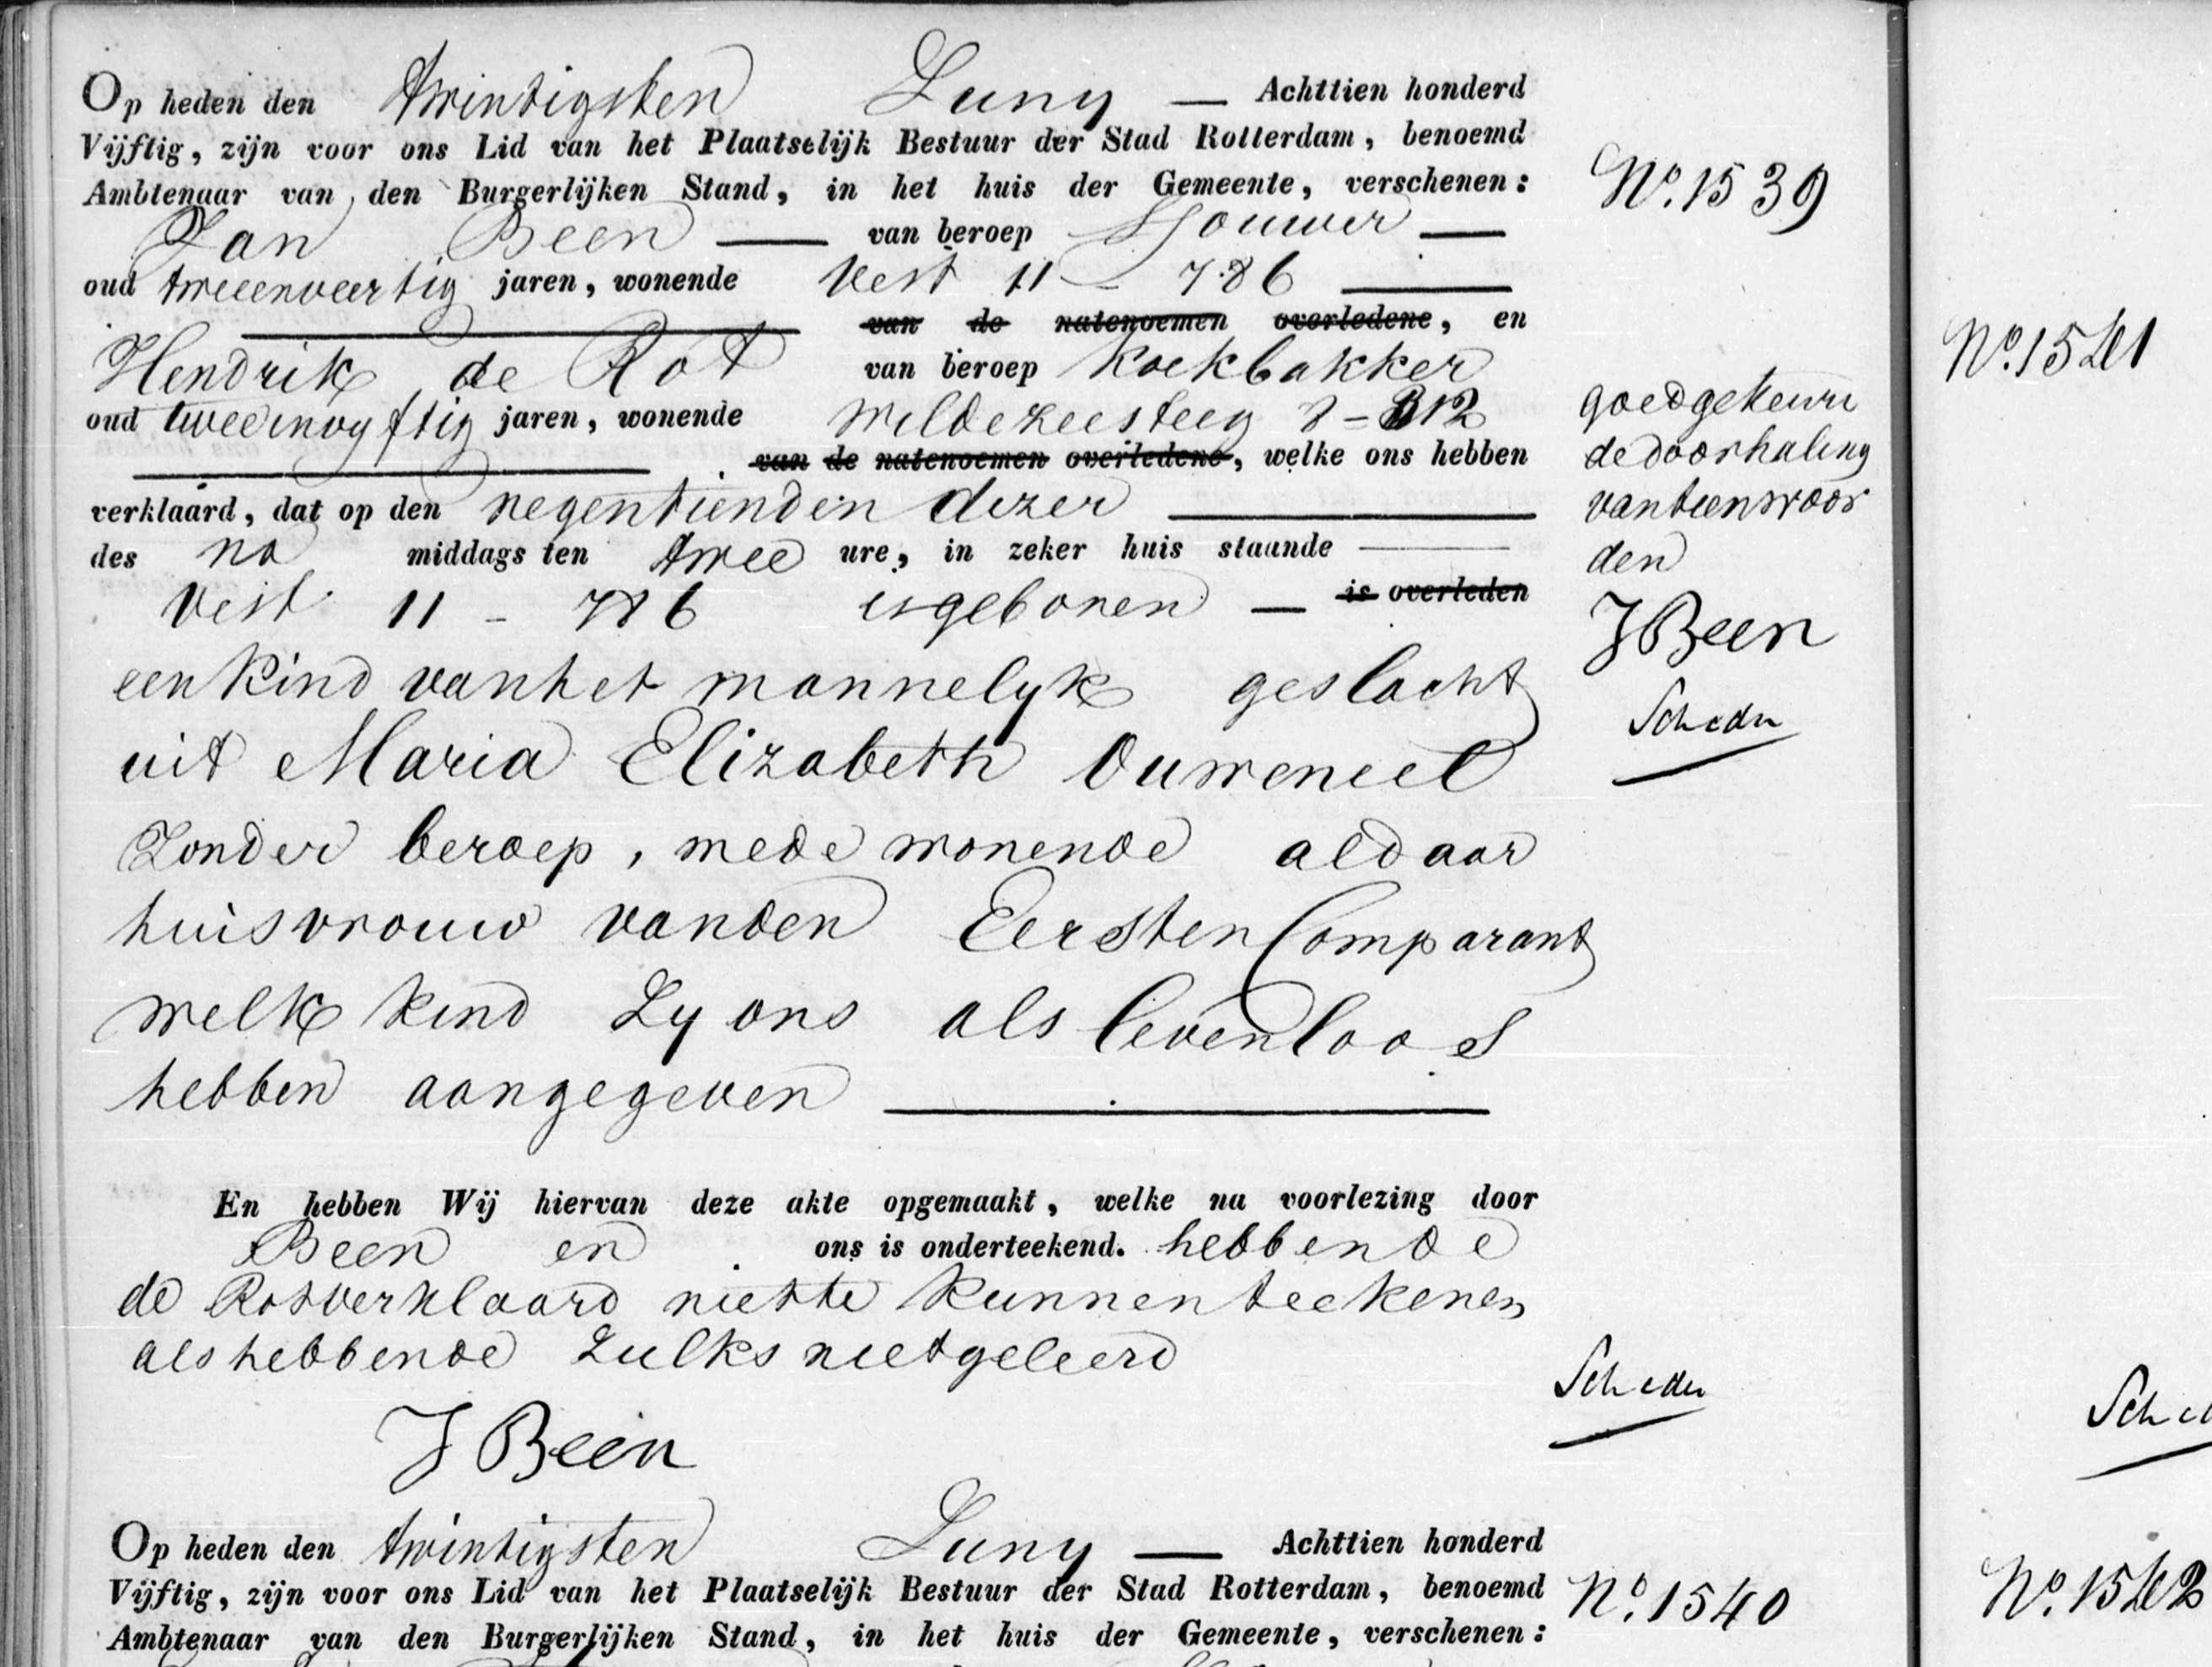 Op heden den twintigsten Juny — Achttien honderd
Vijftig, zijn voor ons Lid van het Plaatselijk Bestuur der Stad Rotterdam, benoemd
Ambtenaar van den Burgerlijken Stand, in het huis der Gemeente, verschenen:
Jan Been — van beroep Sjouwer —
oud tweeenveertig jaren, wonende Vest 11 - 786 —
van de natenoemen overledene, en
Hendrik de Rot van beroep Koekbakker
oud tweeenvyftig jaren, wonende Wildezeesteeg 8 = 312
van de natenoemen overledene, welke ons hebben
verklaard, dat op den negentienden dezer —
des na middags ten twee ure, in zeker huis staande —
Vest 11 - 786 is geboren — is overleden
een kind van het mannelyk geslacht
uit Maria Elizabeth Ouweneel
Zonder beroep, mede wonende aldaar
huisvrouw van den Eersten Comparant
welk kind Zy ons als levenloos
hebben aangegeven —
En hebben Wij hiervan deze akte opgemaakt, welke na voorlezing door
Been en ons is onderteekend. hebbende
de Rot verklaard niet te kunnen teekenen
als hebbende Zulks niet geleerd
J Been
No. 1539
goedgekeurd
de doorhaling
van tien woor
den
J Been
Op heden den twintigsten Juny — Achttien honderd
Vijftig, zijn voor ons Lid van het Plaatselijk Bestuur der Stad Rotterdam, benoemd
Ambtenaar van den Burgerlijken Stand, in het huis der Gemeente, verschenen:
No. 1540
No. 1541
No. 1542